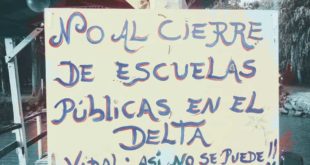 NO AL CIERRE
DE ESCUELAS
PÚBLICAS EN EL
DELTA
VIDAL: ASÍ NO SE PUEDE!!